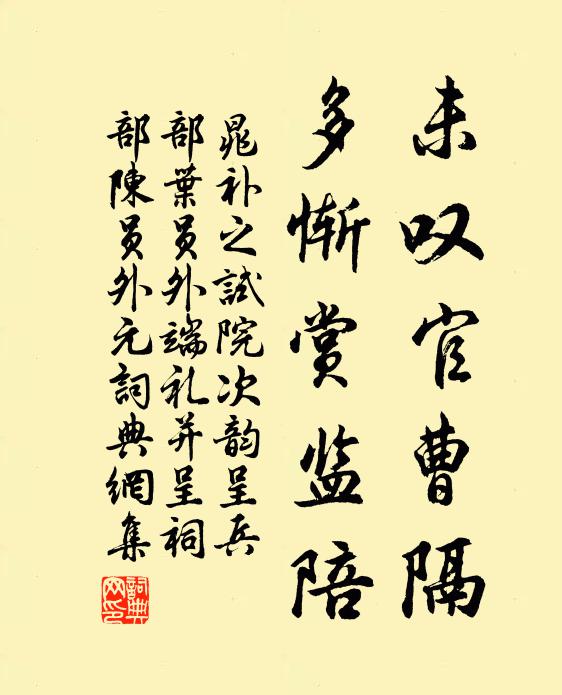 未叹官曹隔
多惭赏监陪
晁补之試院次韵呈兵
部葉员外端礼并呈祠
部陳员外元詞典網集
詞典网印